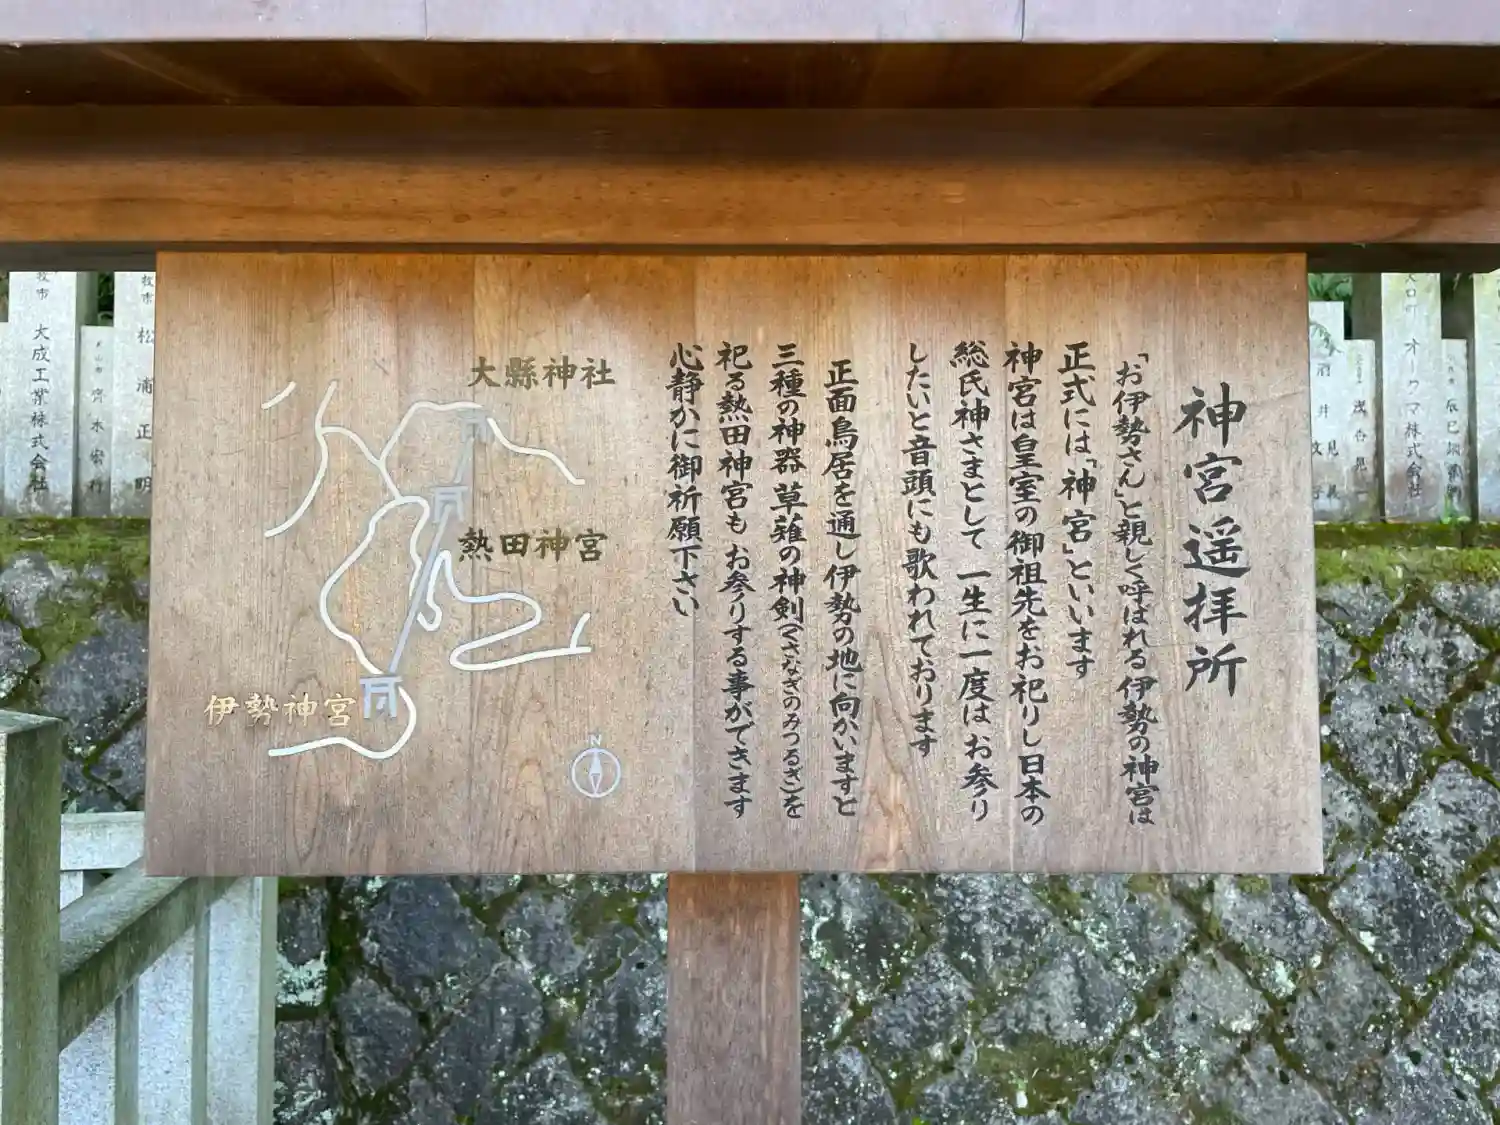 神宮遥拝所
「お伊勢さん」と親しく呼ばれる伊勢の神宮は
正式には「神宮」といいます
神宮は皇室の御祖先をお祀りし日本の
総氏神さまとして 一生に一度は お参り
したいと音頭にも歌われております
正面鳥居を通し伊勢の地に向かいますと
三種の神器 草薙の神剣(くさなぎのみつるぎ)を
祀る熱田神宮も お参りする事ができます
心静かに御祈願下さい
大縣神社
熱田神宮
伊勢神宮
N
大成工業株式会社
松浦正明
オークマ株式会社